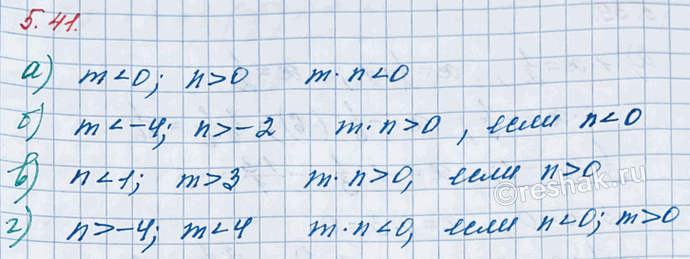 5.41.
а) m<0; n>0 m·n<0
б) m<-4; n>-2 m·n>0, если n<0
в) n<1; m>3 m·n>0, если n>0
г) n>-4; m<4 m·n<0, если n<0; m>0
©reshak.ru